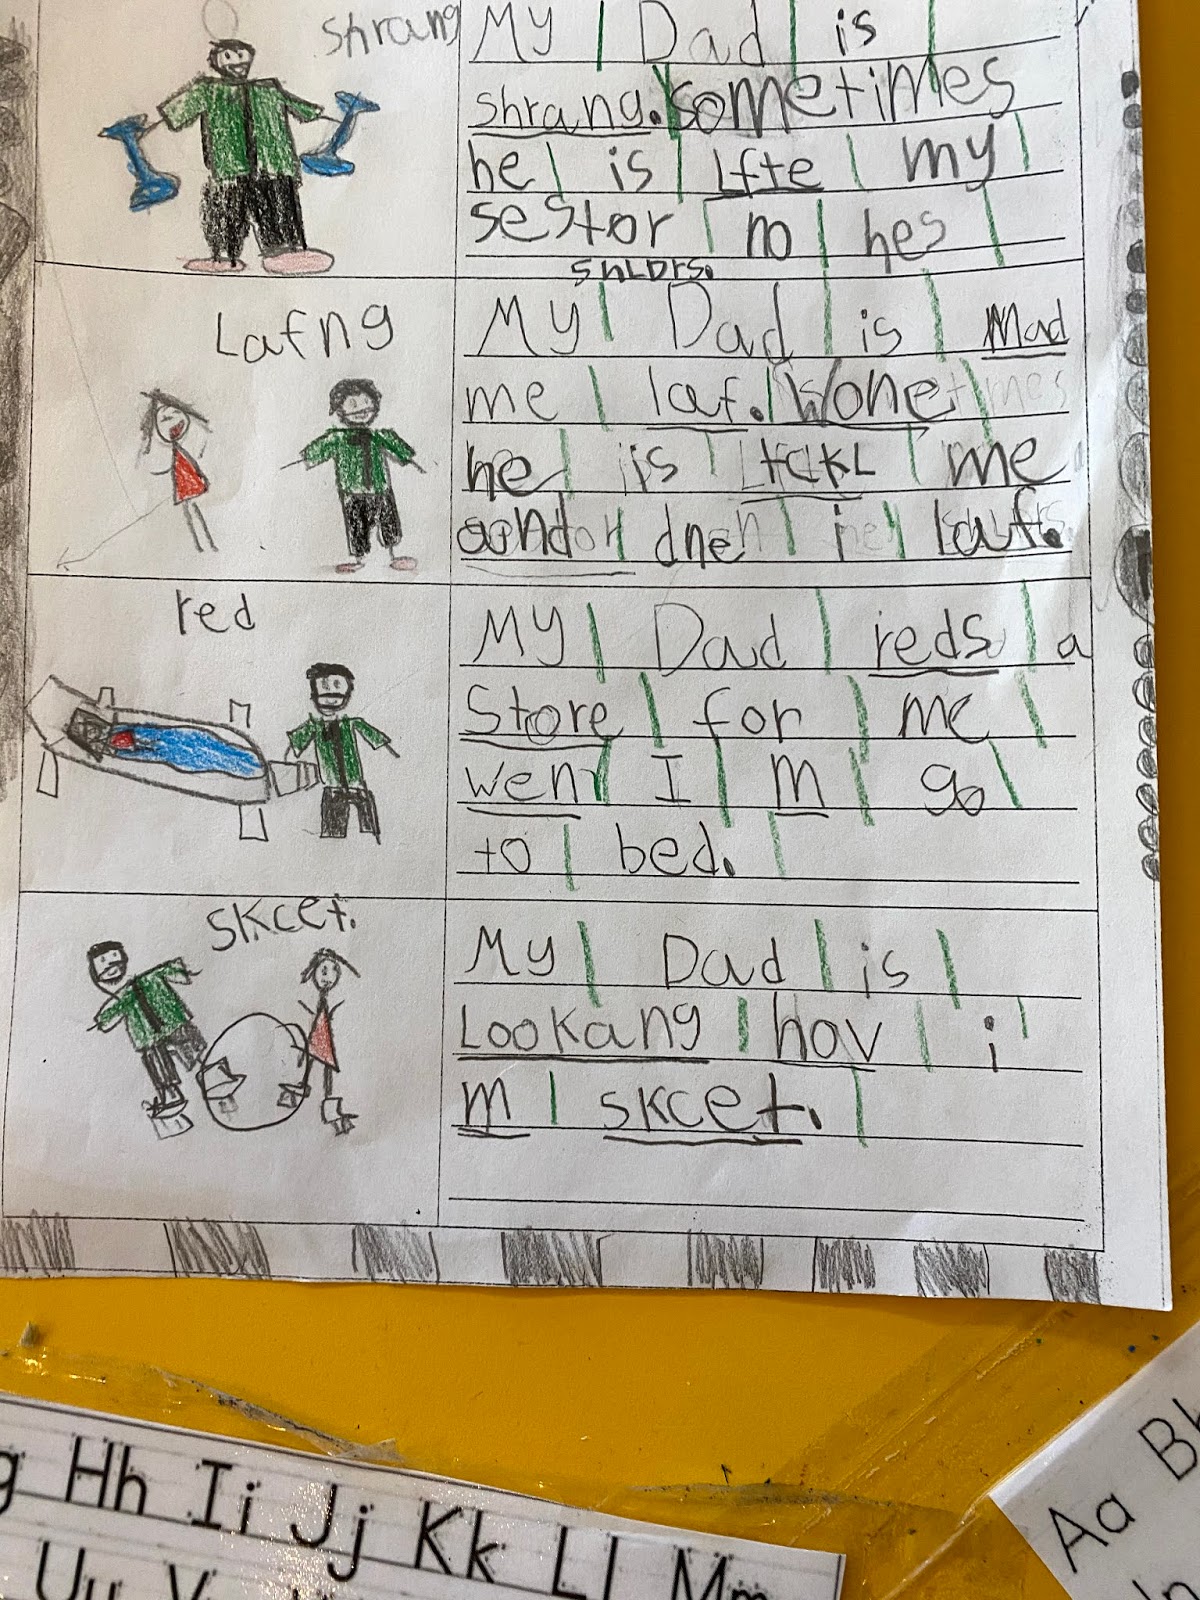 shrang
My Dad is
shrang. sometimes
he is Lfte my
sestor no hes
shLDrs.
Lafng
My Dad is Mad
me laf. Wone
he is tckL me
dnen i laf.
red
My Dad reds a
Store for me
wen I m go
to bed.
skcet.
My Dad is
Lookang hov i
m skcet.
g Hh Ii Jj Kk Ll Mm
Uu V
Aa B